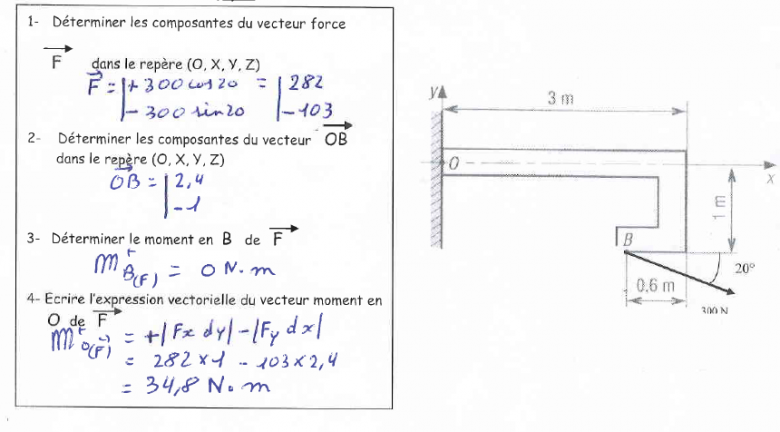 1- Déterminer les composantes du vecteur force
F dans le repère (O, X, Y, Z)
F = | + 300 cos 20 = | 282
| - 300 sin 20 | - 103
2- Déterminer les composantes du vecteur OB
dans le repère (O, X, Y, Z)
OB = | 2,4
| - 1
3- Déterminer le moment en B de F
m B(F) = 0 N.m
4- Ecrire l'expression vectorielle du vecteur moment en
O de F
m O(F) = + |Fx dy| - |Fy dx|
= 282 x 1 - 103 x 2,4
= 34,8 N.m
y
3 m
O
x
1 m
B
20°
0,6 m
300 N